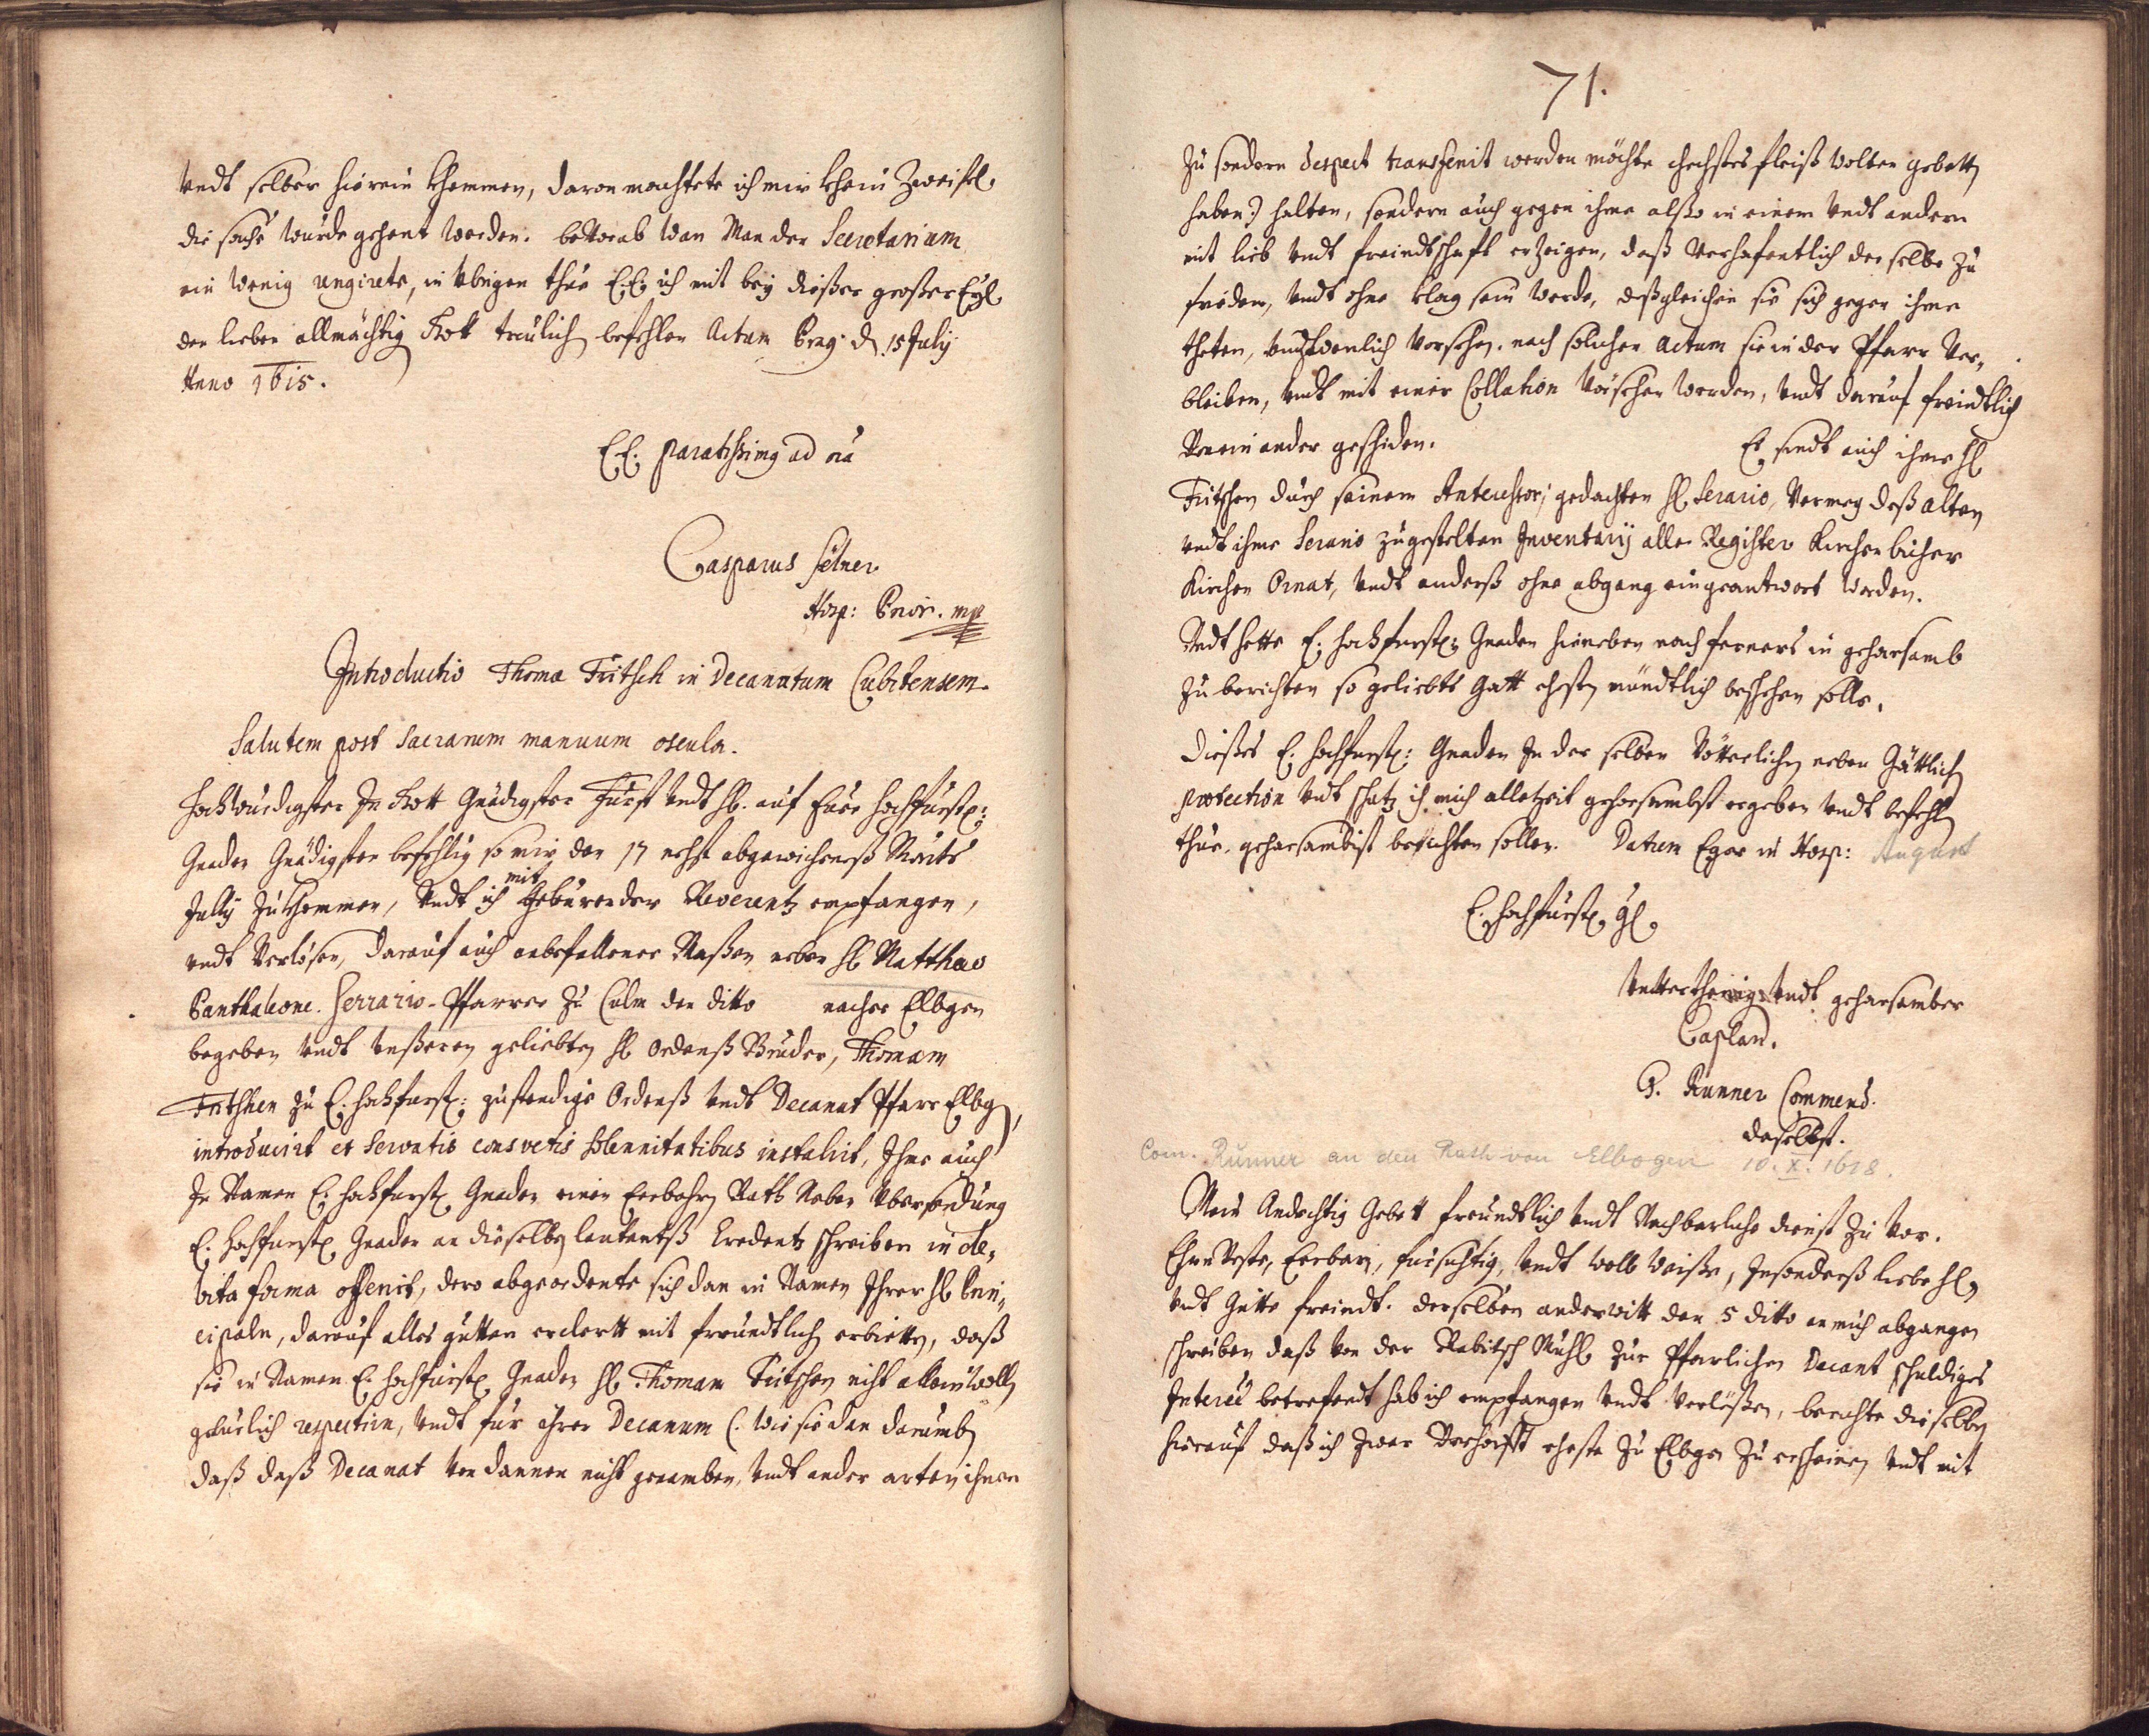 Undt selber hierein khommen, daran machtete ich mir khein Zweifel
die sache wurde gehent werden. bevorab wan Man den Secretarium
ein wenig ungirete, in übrigen thue E.E. ich mit bey dießer großer Eyl
den lieben allmächtig Gott treulich befehlen Actum Prag d 15 July
Anno 1615.
E.E. paratissimg ad oia
Casparus
Hosp: Prior. mp
Introductio Thomæ Fritsch in Decanatum Cubitensem.
Salutem post Sacrarum manuum oscula.
Hochwürdigster In Gott Gnädigster Fürst Undt H. auf Euer Hochfürstl:
Gnaden Gnädigsten befehlig so mir den 17 nehst abgewichenes Monts
July Zukhommen, Undt ich mit Gebürender Reverentz empfangen,
undt Verlösen, darauf auch anbefallener Maßen neben H Matthæo
Panthaleone. Serrario. Pfarrer zu Culm den ditto nacher Elbgen
begeben Undt Unßeren geliebten H Ordenß Bruder, Thomam
Fritshen zu E. Hochfürstl: zustendige Ordenß Undt Decanat Pfarr Elbgn,
introducirt et Servatis consvetis solennitatibus installirt, Ihme auch
In Namen E. Hochfürstl Gnaden einen Erbahrn Rath Neben Übersendung
E. Hochfürstl Gnaden an dieselbn lautentß Credentz schreiben in de,
bita forma offerirt, dero abgeordente sich dan in Namen Ihrer H Prin,
cipaln, darauf alles gutten erclertt mit freundtlich erbietten, daß
sie in Namen E. Hochfürstl Gnaden H Thomam Fritschen nicht allein wolln
gebürlich respectirn, Undt für ihren Decanum (. wie sie dan darumb
daß daß Decanat von dannen nicht genomben, Undt ander orten ihnen
71.
Zu sondern despect transferirt werden möchte höchstes fleiß wolten gebettn
haben:) halten, sondern auch gegen ihme also in einem Undt andern
mit lieb Undt freindtschaft erzeigen, daß Verhofentlich derselbe zu
friden, Undt ohne klag sein werde, deßgleichen sie sich gegen ihme
theten, Vorsehen. nach solichen actum sie in der Pfarr Ver,
bleiben, Undt mit einer Collation Vorsehen worden, Undt darauf freindtlich
Von einander geschiden. Es sindt auch ihme H
Fritschen durch seinem Antecessori gedachten H Serario, Vermög deß alten
undt ihme Serario zugestelten Inventarij alle Register Kirchenbücher
Kirchen Ornat, Undt anderß ohne abgang eingeantwort worden.
Undt hette E. Hochfürstl: Gnaden hierneben noch ferners in gehorsamb
zu berichten so geliebts Gott ehestn mündtlich beschehen solle.
Dießes E. Hochfürstl: Gnaden In der selben Vätterlichn neben Göttlich
protection Undt schutz ich mich alletzeit gehorsambst ergeben Undt befehln
thue. gehorsambist berichten sollen. Datum Eger in Hosp: August
E. Hochfürstl Gl
Underthenig Undt gehorsamber
Caplan.
P. Runner Commend.
daselbst.
Com. Runner an den Rath von Elbogen 10. X. 1618.
Mein Andechtig Gebett freundtlich Undt Nachbarliche dienst zu Vor.
EhrnVeste, Erbare, fürsichtig, Undt woll Weiße, Insonderß liebe H,
Undt Gutte freindt. derselben anderwitt den 5 ditto an mich abgangen
schreiben daß von der Rabitsch Mühl zur Pfarlichen Decant schuldiges
Interes betrefendt hab ich empfangen Undt Verleßen, berichte dieselbn
hierauf daß ich zwar Verhofft eheste zu Elbgn zu erscheinen Undt mit